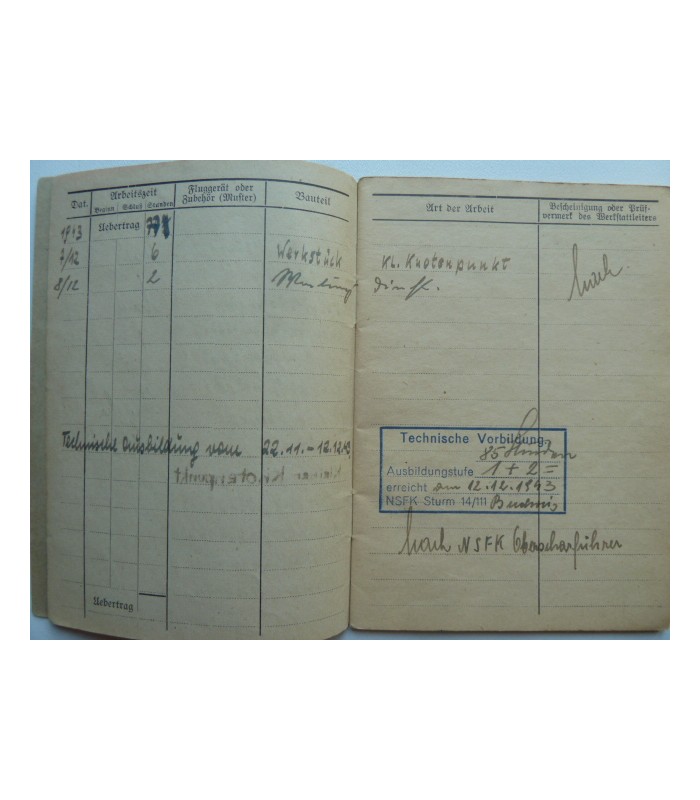 Dat. Arbeitszeit Fluggerät oder Zubehör (Muster) Bauteil
Beginn Schluß Stunden
1943 Uebertrag 77
7/12 6 Werkstück
8/12 2
Technische Ausbildung vom 22.11. – 12.12.43
Uebertrag
Art der Arbeit Bescheinigung oder Prüf-
vermerk des Werkstattleiters
Kl. Knotenpunkt
Technische Vorbildung
85 Stunden
Ausbildungstufe 1 + 2 =
erreicht am 12.12.1943
NSFK Sturm 14/111 Budweis
NSFK Oberscharführer